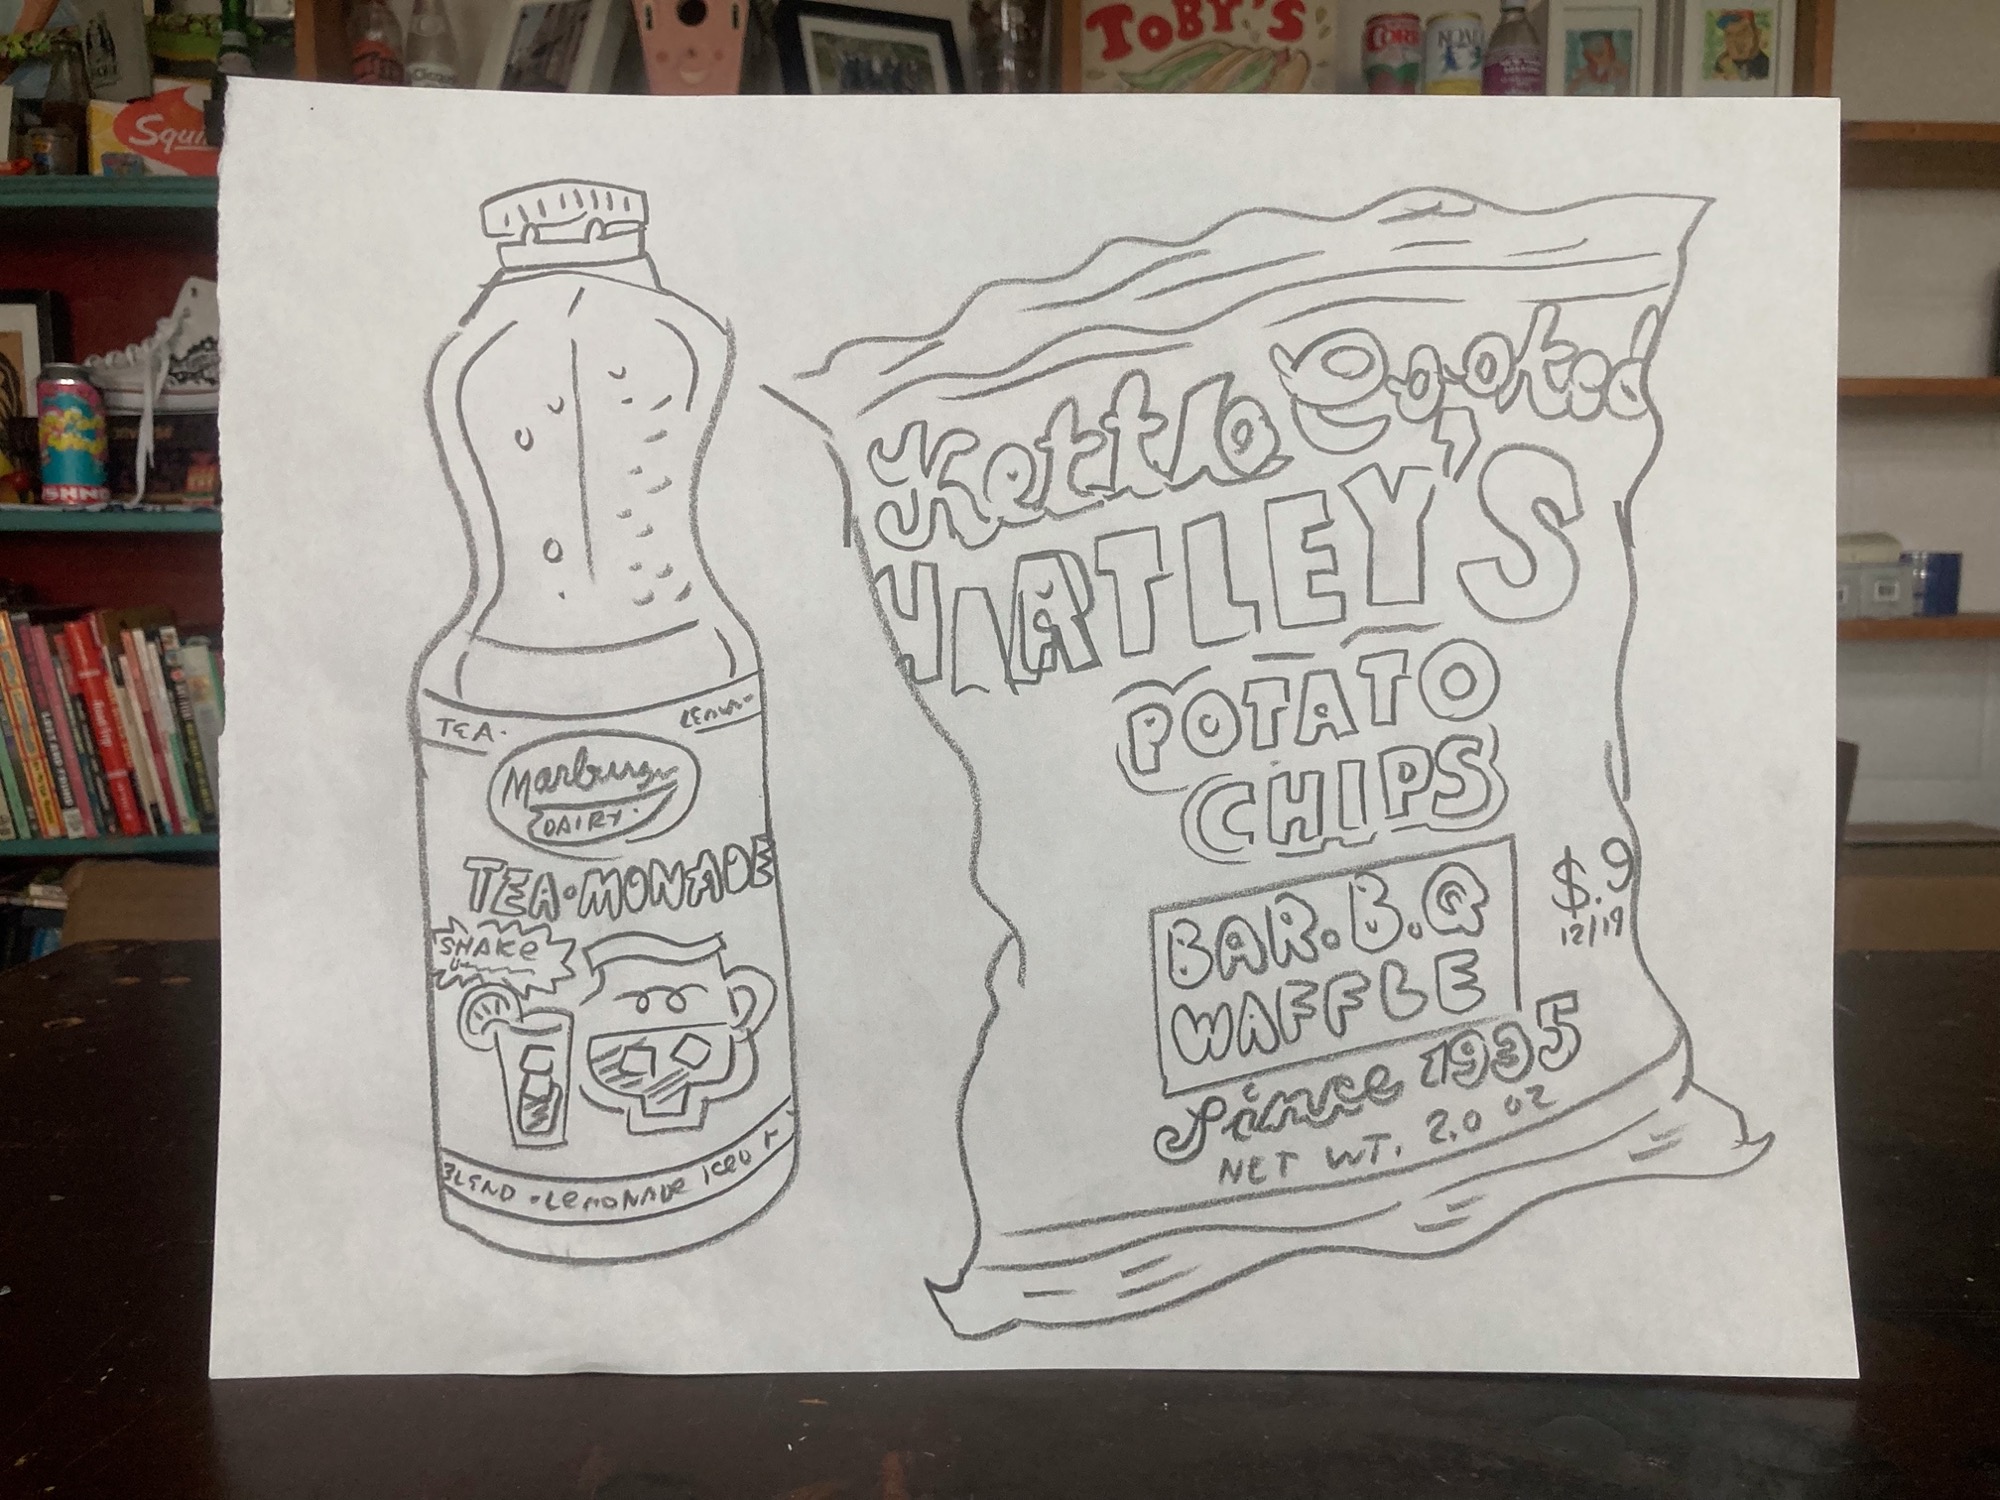 TOBY'S
Squi
TEA·
LEMON-
Marburger
DAIRY·
TEA·MONADE
SHAKE
BLEND · LEMONADE ICED T
Kettle Cooked
HARTLEY'S
POTATO
CHIPS
BAR.B.Q
WAFFLE
$.9
12/19
Since 1935
NET WT. 2.0 OZ